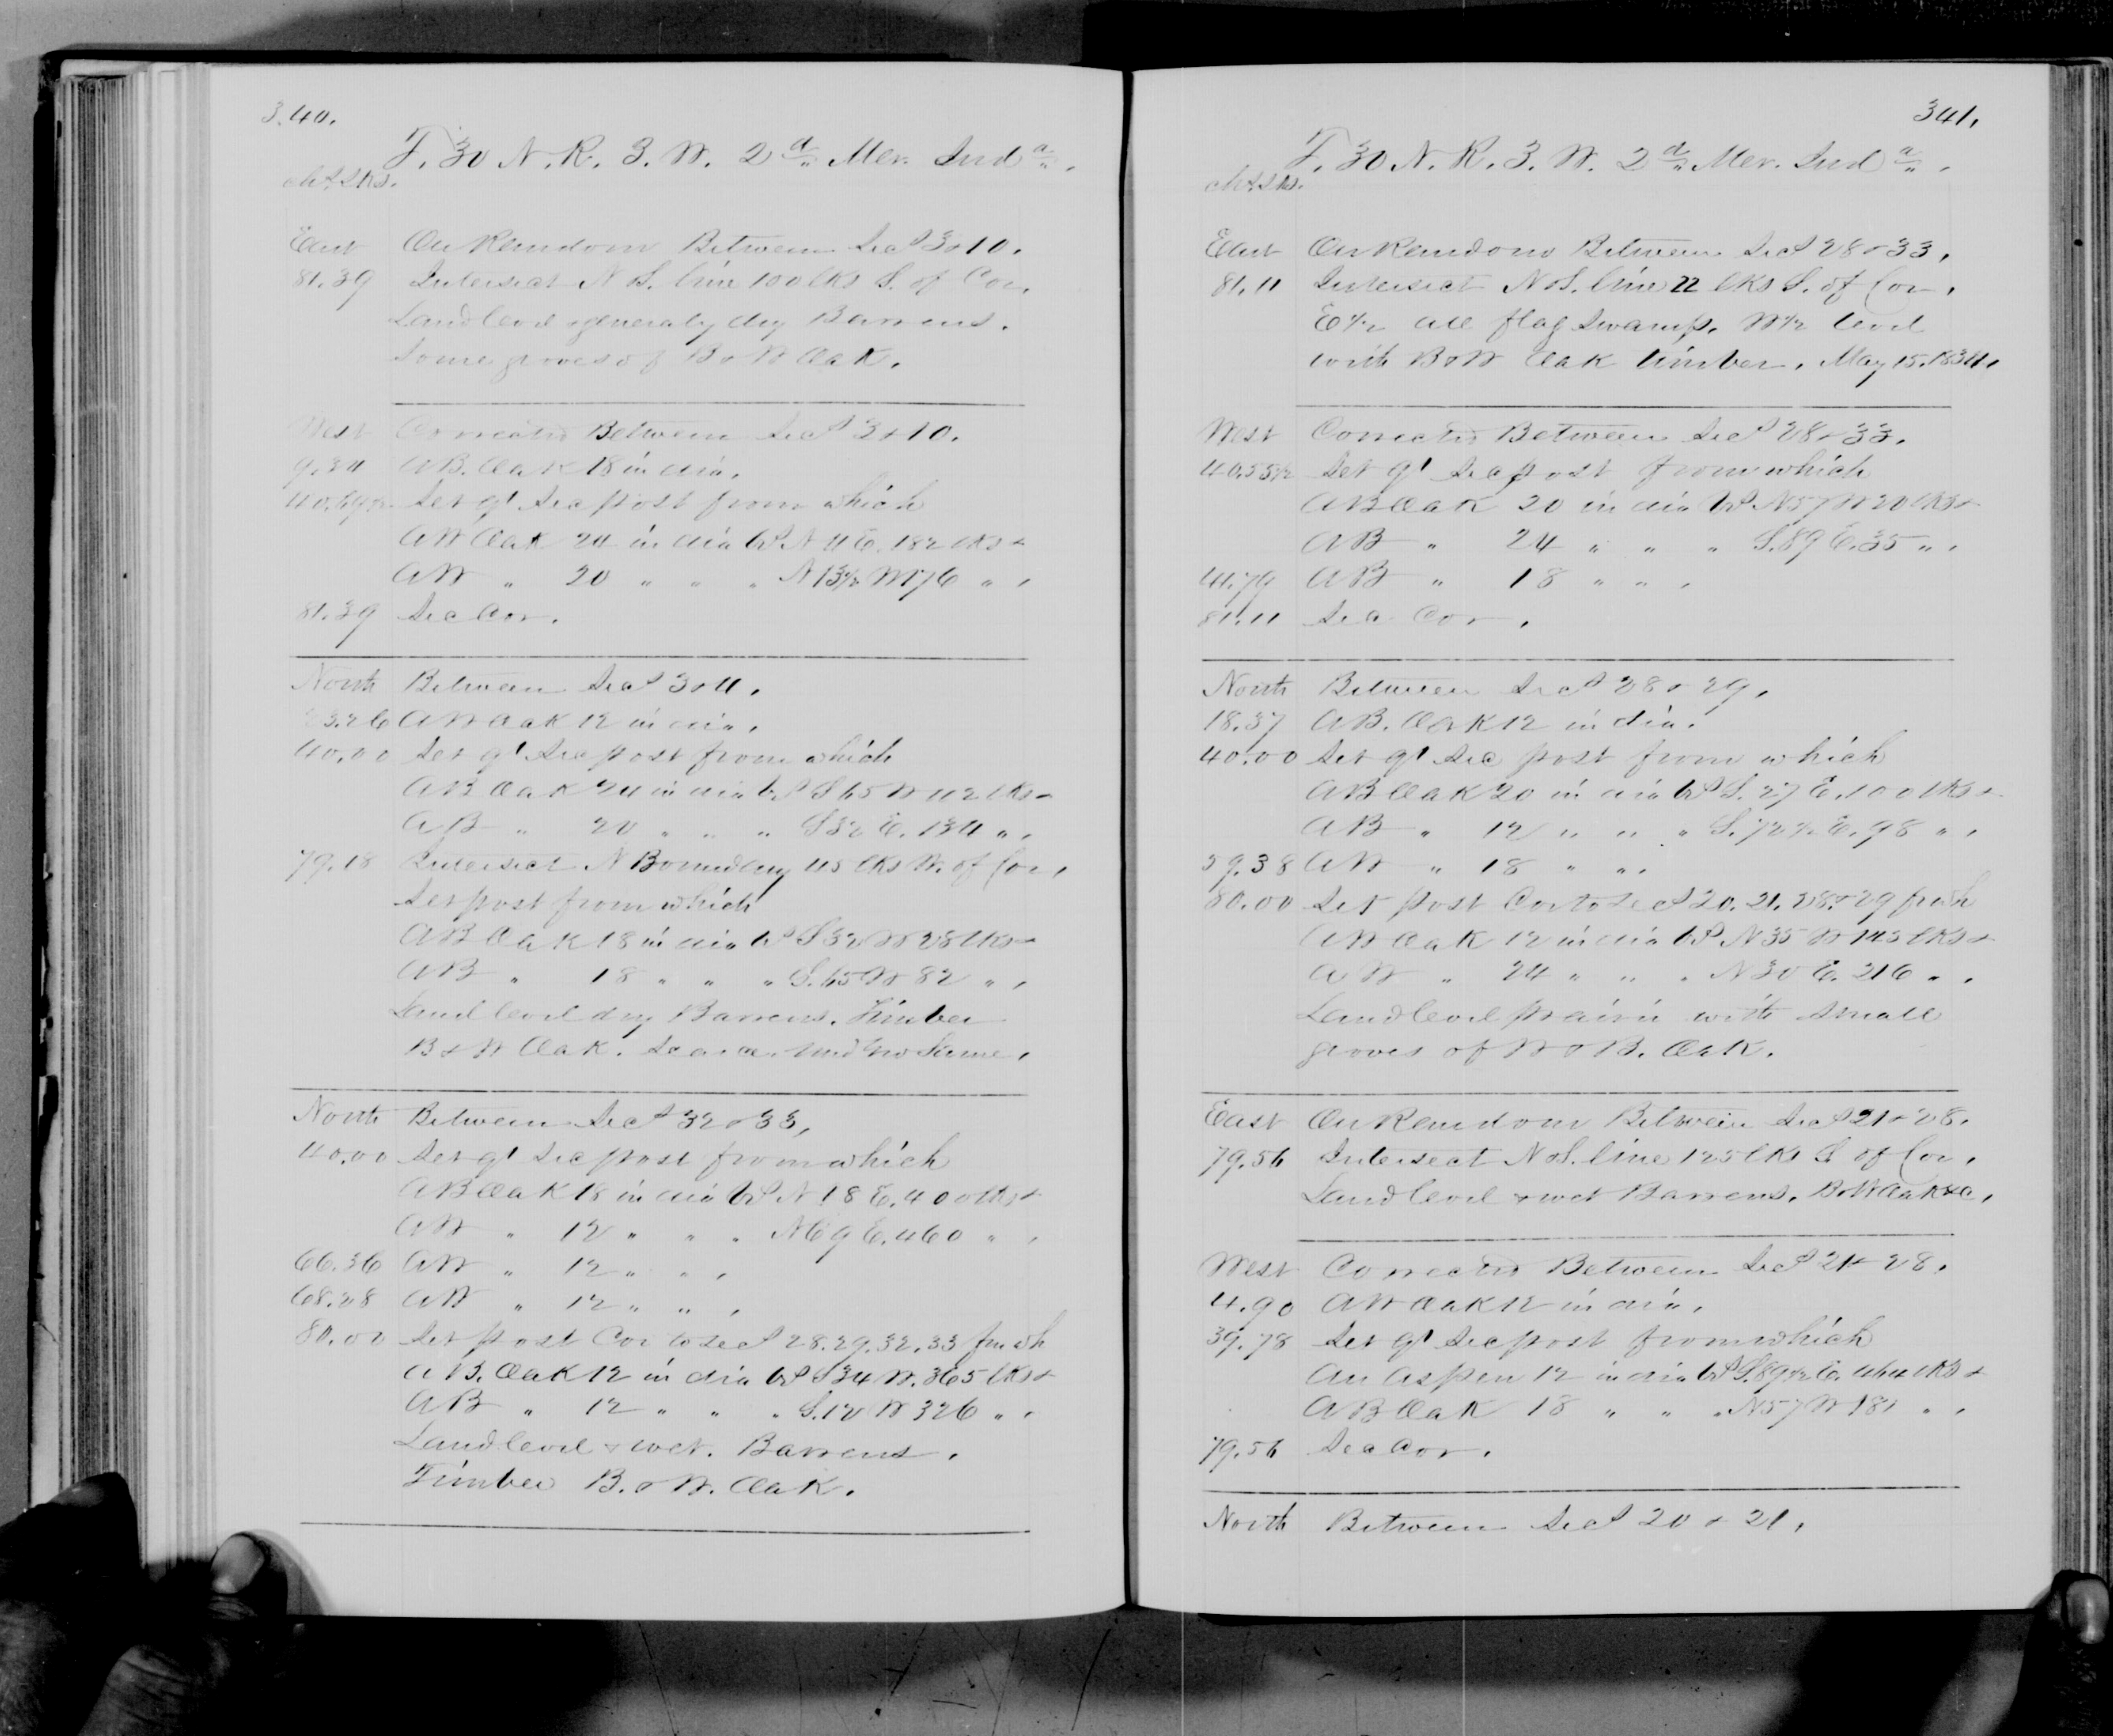 340.
T. 30 N. R. 3. W. 2d Mer. Inda.
chs lks.
East On Random Between Secs 3 & 10.
81.39 Intersect N & S. line 100 lks S. of Cor.
Land level & generaly dry Barrens.
Some groves of B & W Oak.
West Corrected Between Secs 3 & 10.
9.34 A B. Oak 18 in dia.
40.69½ Set qr Sec post from which
A W Oak 24 in dia brs N 4 E. 182 lks &
A W " 20 " " " N 13½ W 176 " .
81.39 Sec Cor.
North Between Secs 3 & 4.
23.26 A W Oak 12 in dia.
40.00 Set qr Sec post from which
A B Oak 24 in dia brs S 65 W 112 lks &
A B " 20 " " " S 32 E. 134 " .
79.18 Intersect N Boundary 45 lks W. of Cor.
Set post from which
A B Oak 18 in dia brs S 32 W 28 lks &
A B " 18 " " " S. 65 W 82 " .
Land level dry Barrens. Timber
B & W Oak. Scarce. Und Gro Same.
North Between Secs 32 & 33,
40.00 Set qr Sec post from which
A B Oak 18 in dia brs N 18 E. 400 lks &
A W " 12 " " " N 69 E. 460 " .
66.36 A W " 12 " " .
68.28 A W " 12 " " .
80.00 Set post Cor to secs 28. 29. 32. 33 frm wh
A B. Oak 12 in dia brs S 34 W. 365 lks &
A B " 12 " " " S. 12 W 326 " .
Land level & wet. Barrens.
Timber B. & W. Oak.
341.
T. 30 N. R. 3. W. 2d Mer. Inda.
chs lks.
East On Random Between Secs 28 & 33.
81.11 Intersect N & S. line 22 lks S. of Cor.
E ½ all flag Swamp. W ½ level
with B & W Oak timber. May 15. 1834.
West Corrected Between Secs 28 & 33.
40.55½ Set qr Sec post from which
A B Oak 20 in dia brs N 57 W 20 lks &
A B " 24 " " " S. 89 E. 35 " .
41.79 A B " 18 " " .
81.11 Sec Cor.
North Between Secs 28 & 29.
18.37 A B. Oak 12 in dia.
40.00 Set qr Sec post from which
A B Oak 20 in dia brs S. 27 E. 100 lks &
A B " 12 " " " S. 72½ E. 98 " .
59.38 A W " 18 " " .
80.00 Set post Cor to secs 20. 21. 28. & 29 fr wh
A W Oak 12 in dia brs N 35 W 143 lks &
A W " 24 " " " N 30 E. 216 " .
Land level prairie with small
groves of W & B. Oak.
East On Random Between Secs 21 & 28.
79.56 Intersect N & S. line 125 lks S of Cor.
Land level & wet Barrens. B & W Oak &c.
West Corrected Between Secs 21 & 28.
4.90 A W Oak 12 in dia.
39.78 Set qr Sec post from which
An Aspen 12 in dia brs S. 89½ E. lks &
A B Oak 18 " " " N 57 W 181 " .
79.56 Sec Cor.
North Between Secs 20 & 21.